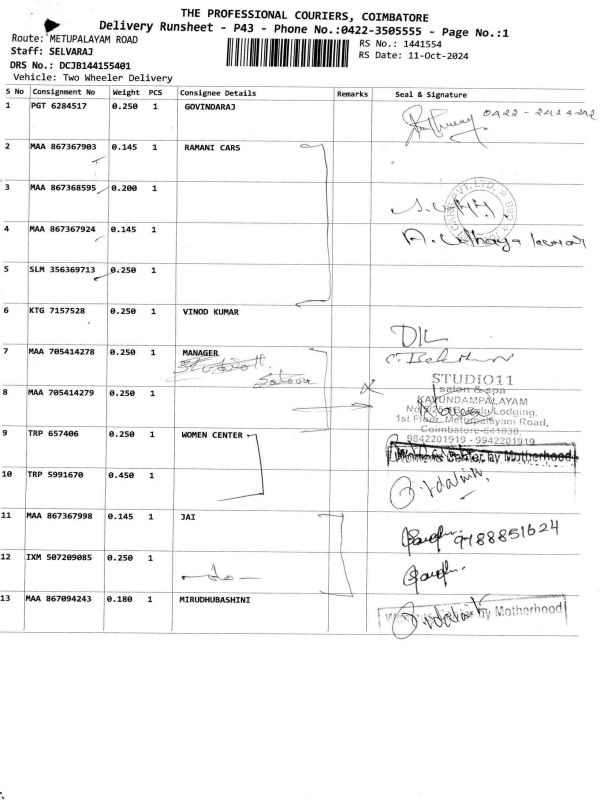 THE PROFESSIONAL COURIERS, COIMBATORE
Delivery Runsheet - P43 - Phone No.:0422-3505555 - Page No.:1
Route: METUPALAYAM ROAD
RS No.: 1441554
Staff: SELVARAJ
RS Date: 11-Oct-2024
DRS No.: DCJB144155401
Vehicle: Two Wheeler Delivery
S No Consignment No Weight PCS Consignee Details Remarks Seal & Signature
1 PGT 6284517 0.250 1 GOVINDARAJ
2 MAA 867367903 0.145 1 RAMANI CARS
3 MAA 867368595 0.200 1
4 MAA 867367924 0.145 1
5 SLM 356369713 0.250 1
6 KTG 7157528 0.250 1 VINOD KUMAR
7 MAA 705414278 0.250 1 MANAGER
STUDIO11
salon & spa
KAVUNDAMPALAYAM
8 MAA 705414279 0.250 1
Lodging,
1st Floor, Metupalayam Road,
Coimbatore-641030
9842201919 - 9942201919
9 TRP 657406 0.250 1 WOMEN CENTER
by Motherhood
10 TRP 5991670 0.450 1
11 MAA 867367998 0.145 1 JAI
9788851624
12 IXM 507209085 0.250 1
-do-
13 MAA 867094243 0.180 1 MIRUDHUBASHINI
by Motherhood